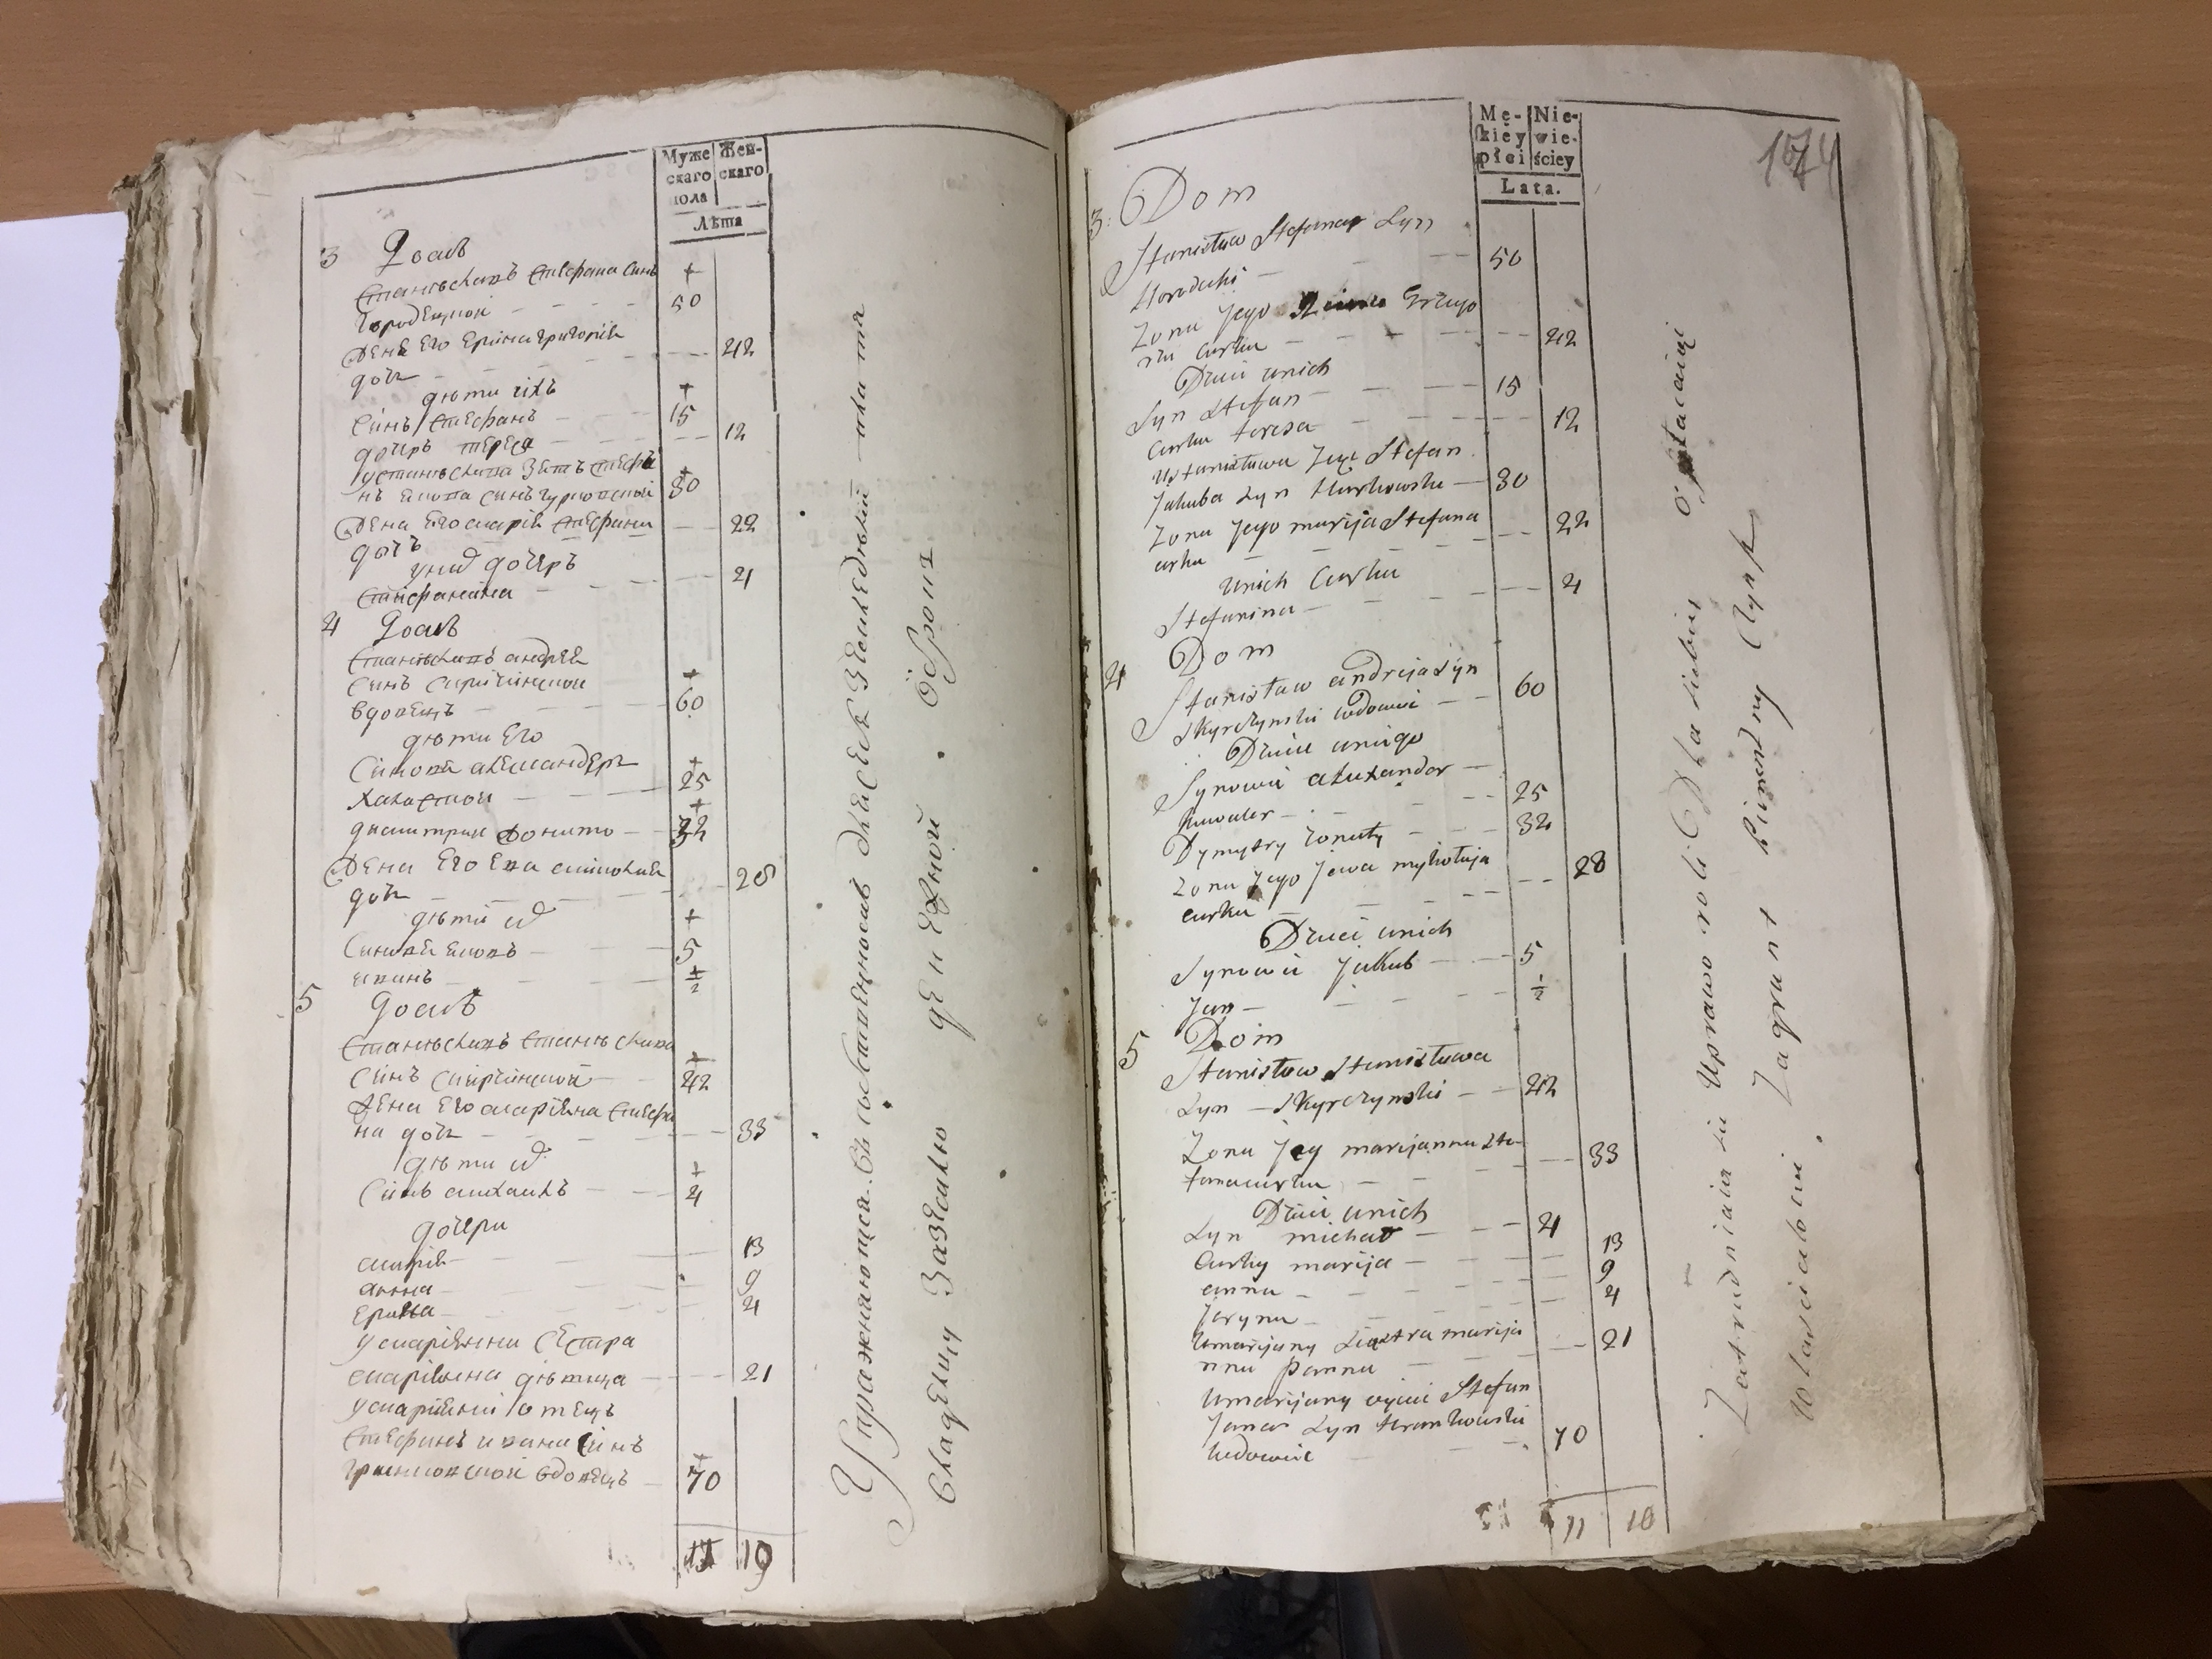 Муже
скаго
пола
Жен-
скаго
Лѣта
3 Домъ
Станѣславъ Стефана синъ
Городецкой 50
Жена Его Ерина григорія
дочь 42
дѣти ихъ
Синъ Стефанъ 15
дочеръ тереса 12
устанѣслава Зять Стефа
нъ якова синъ 30
Жена Его марія Стефана
дочъ 22
унид дочеръ
Стефаніна 4
4 Домъ
Станѣславъ андрея
Синъ Скирчинской
вдовецъ 60
дѣти Его
Синовя александеръ
Халастой 25
дмитрии жонато 32
Жена Его Ева миколая
дочь 28
дѣти ид
Синовя яковъ 5
иванъ ½
5 Домъ
Станѣславъ Станѣслава
Синъ Скирчинской 42
Жена Его маріяна Стефа
на дочь 33
дѣти ид
Синъ михаилъ 4
дочери
марія 13
анна 9
Ерина 4
у маріянни Сестра
маріянна дѣвица 21
у маріянни отецъ
Стефанъ ивана Синъ
вдовецъ 70
19
Упражняются
Владелцу Заземлю денежной Оброкъ
Mę-
skiéy
płci
Nie-
wie-
ściey
Lata.
174
3: Dom
Stanisław Stefana Syn
Horodecki 50
Zona Jego Grzego
rża Curka 42
Dzieci unich
Syn Stefan 15
Curka teresa 12
Ustanisława Zięć Stefan
Jakuba Syn 30
Zona Jego marija Stefana
curka 22
Unich Curka
Stefanina 4
4 Dom
Stanisław andreja Syn
Skyrczynski wdowiec 60
Dzieci uniego
Synowie alexander
kawaler 25
Dymytry żonaty 32
Zona Jego Jewa mykołaja
curka 28
Dzieci unich
Synowie Jakub 5
Jan ½
5 Dom
Stanisław Stanisława
Syn Skyrczynski 42
Zona Jeg marijanna Ste
fana curka 33
Dzieci unich
Syn michał 4
Curky marija 13
anna 9
Jaryna 4
Umarijany Siostra marija
nna panna 21
Umarijany oyciec Stefan
Jana Syn
wdowiec 70
11 10
Zatrudniaią się Uprawo roli Dla siebie Opłacaiąc
Włascicielowi Zagrunt Pieniężny Czynsz